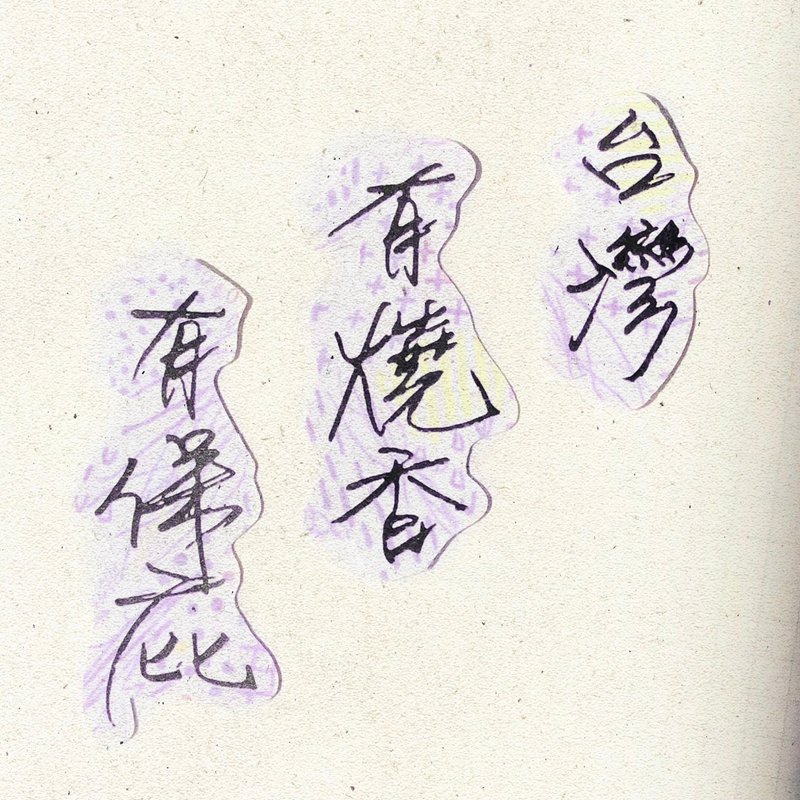 台灣
有燒香
有保庇